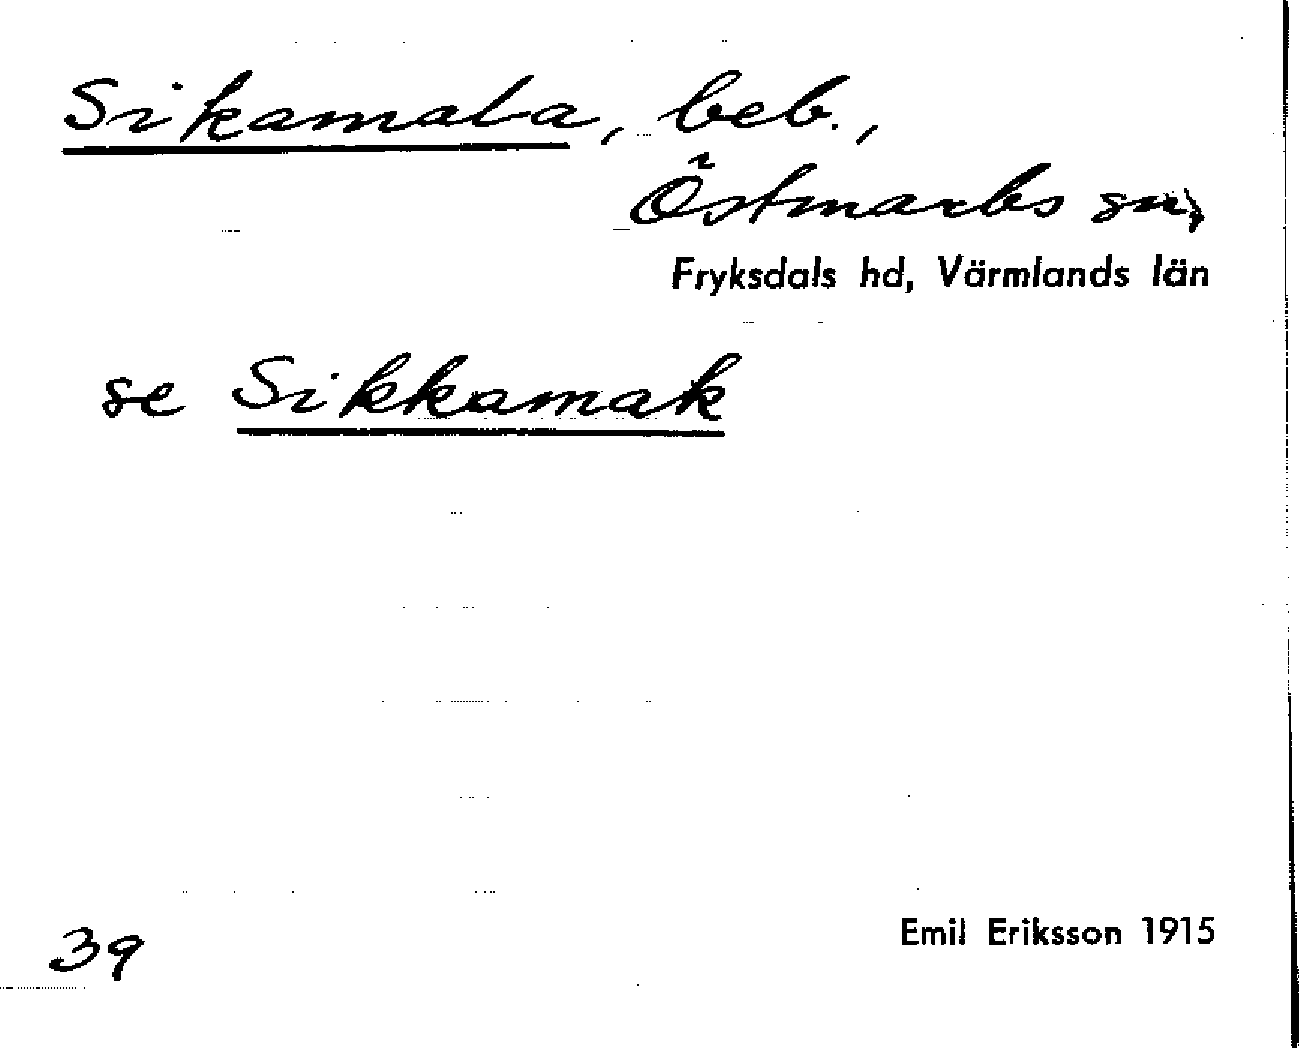 Sikamala, beb.,
Östmarks sn,
Fryksdals hd, Värmlands län
se Sikkamak
39
Emil Eriksson 1915